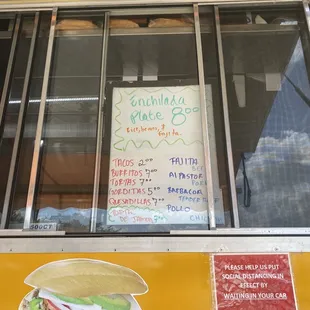 Enchilada
Plate 8.00
Rice, beans, &
TACOS 2.00
BURRITOS 7.00
TORTAS 7.00
GORDITAS 5.00
QUESADILLAS 7.00
FAJITA
AL PASTOR
PORK
BARBACOA
TENDER
POLLO
PLEASE HELP US PUT
SOCIAL DISTANCING IN
EFFECT BY
WAITING IN YOUR CAR